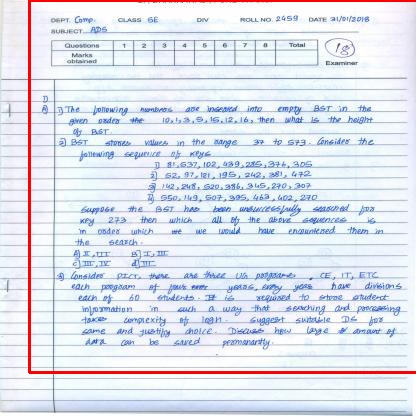 DEPT. Comp. CLASS SE DIV ROLL NO. 2459 DATE 31/01/2018
SUBJECT ADS
Questions 1 2 3 4 5 6 7 8 Total
Marks obtained
18
Examiner
1)
A) 1) The following numbers are inserted into empty BST in the
given order 10,1,3,5,15,12,16, then what is the height
of BST.
2) BST stores values in the range 37 to 573. Consider the
following sequence of keys
1) 81,537,102,439,285,376,305
2) 52, 97, 121, 195, 242, 381, 472
3) 142, 248, 520, 386, 345, 270, 307
4) 550, 149, 507, 395, 463, 402, 270
Suppose the BST has been unsuccessfully searched for
key 273 then which all of the above sequences is
in order which we would have encountered them in
the search.
A) II, III B) I, III
C) III, IV d) III
3) Consider PICT, there are three UG programs, CE, IT, ETC
each program of four years, every years have divisions
each of 60 students. It is required to store student
information in such a way that searching and processing
takes complexity of logn. Suggest suitable DS for
same and justify choice. Discuss how large amount of
data can be saved permanantly.